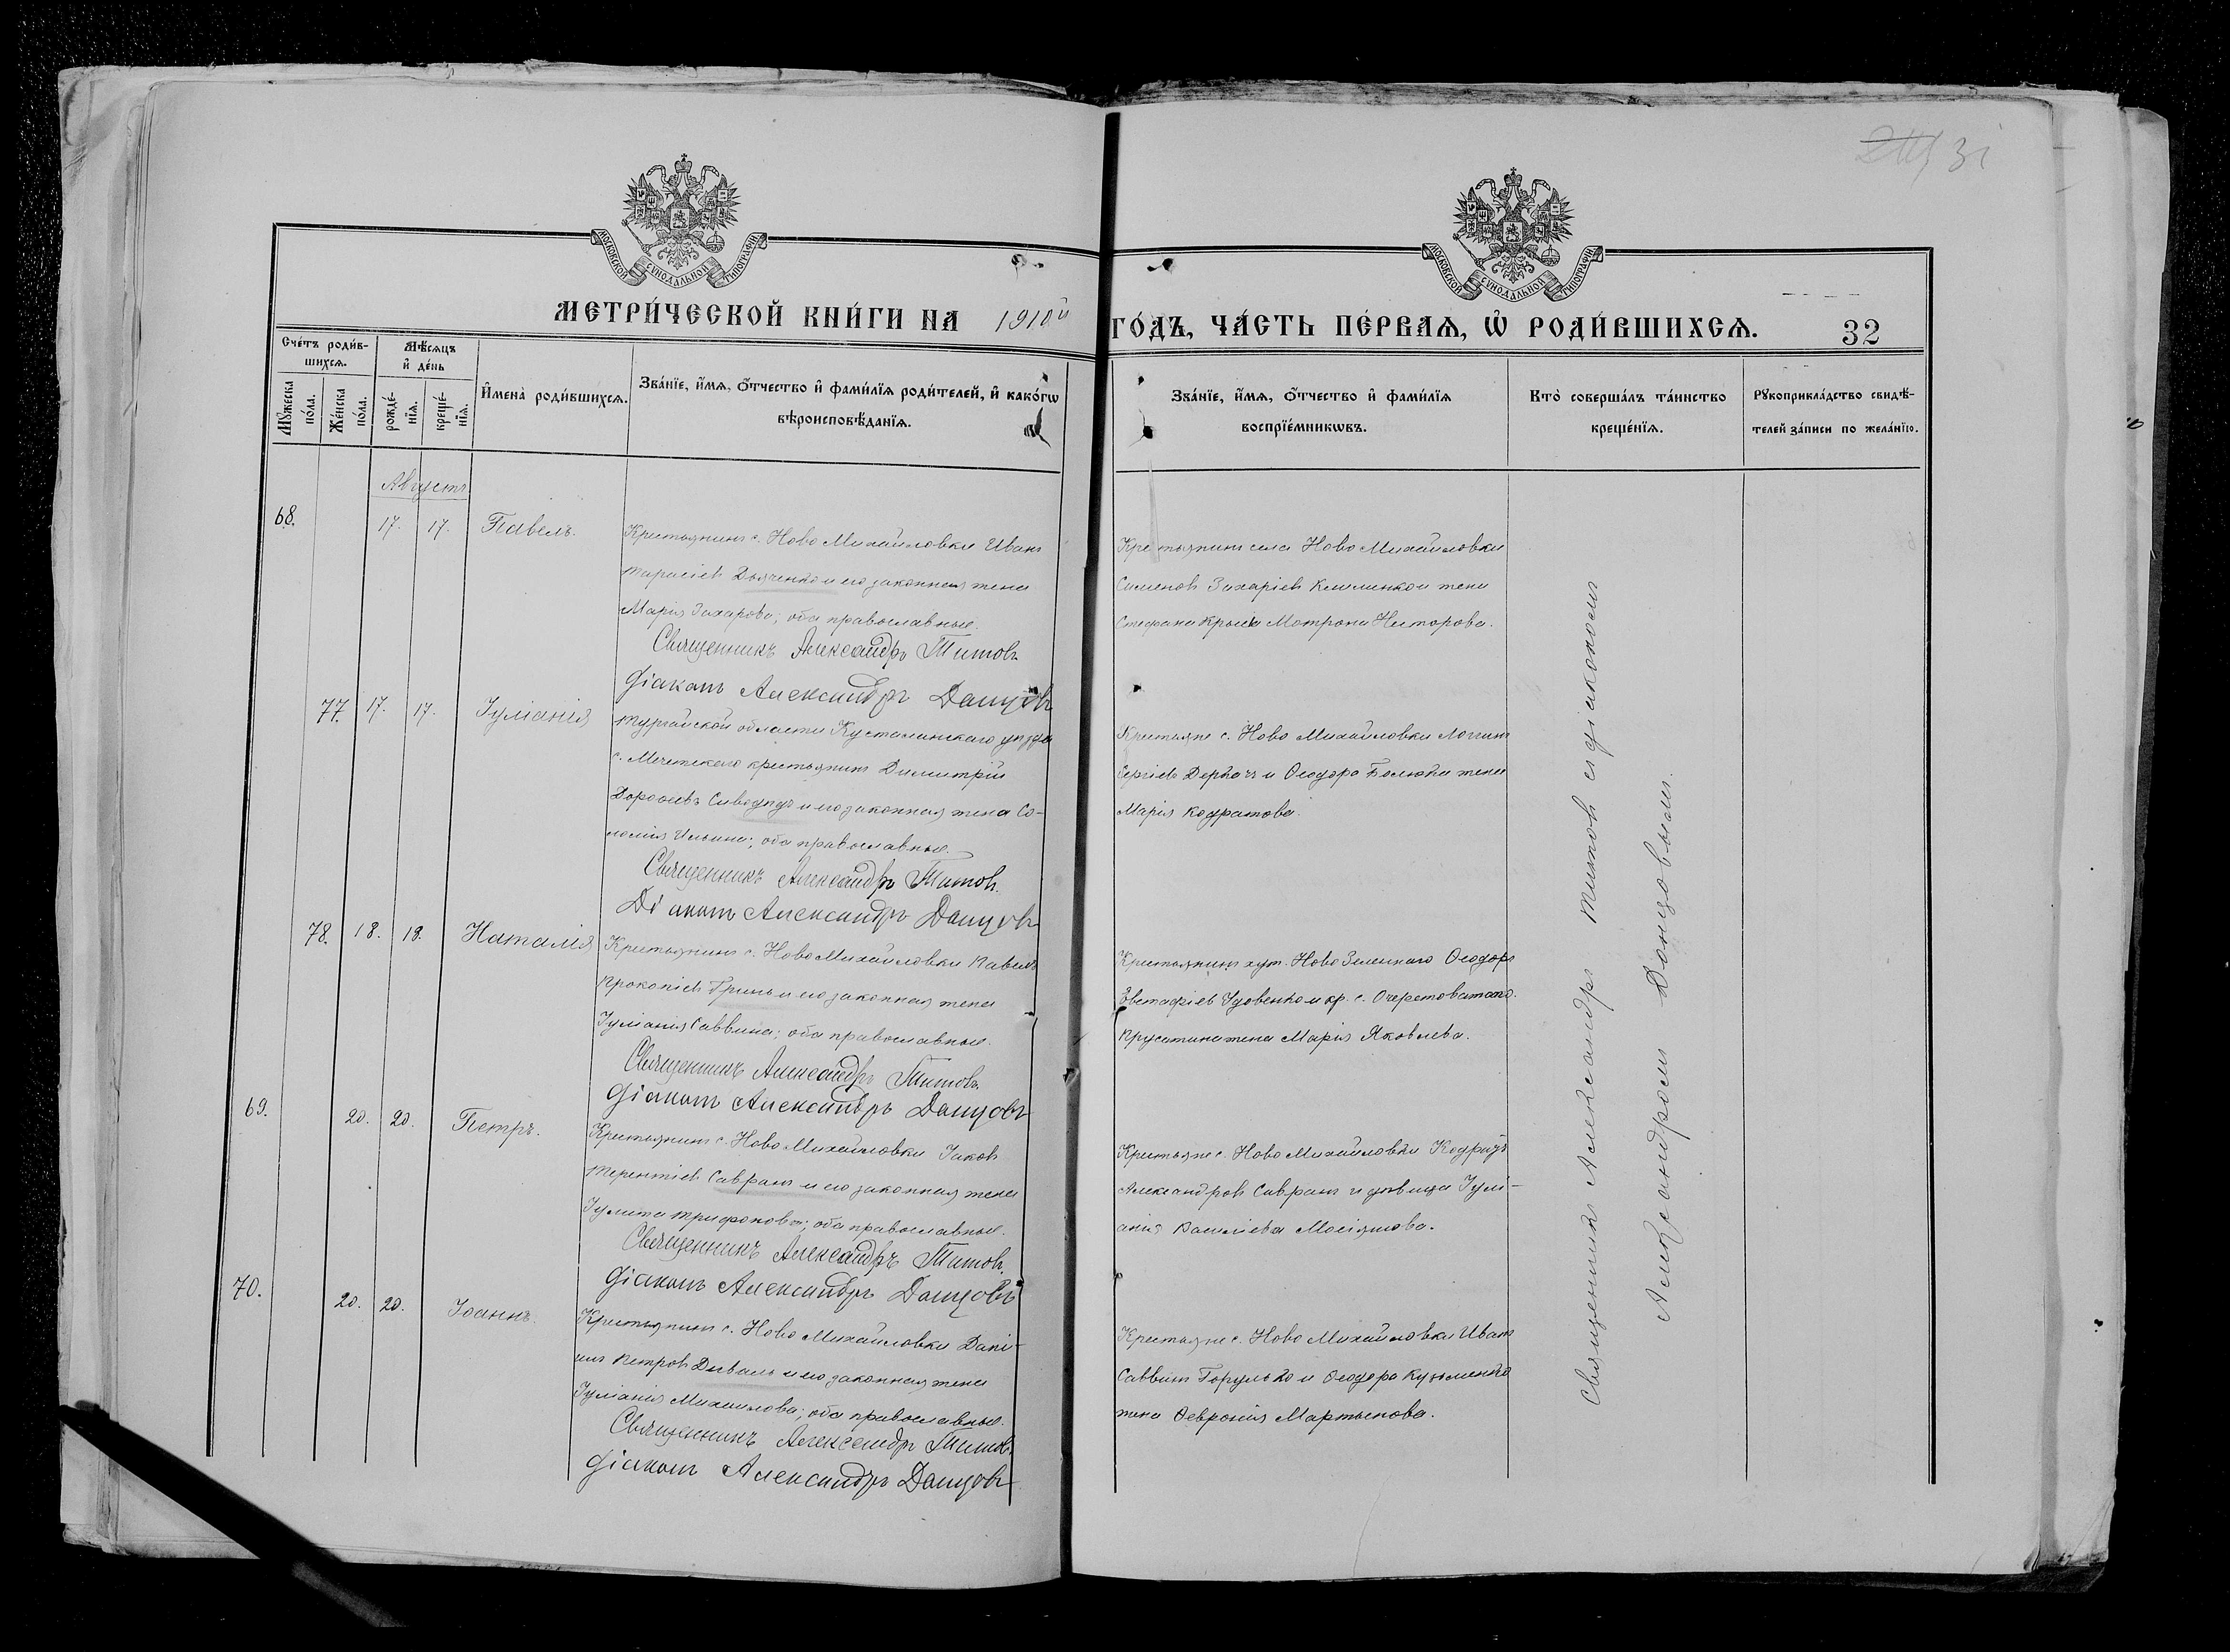 31
МОСКОВСКОЙ СѴНОДАЛЬНОЙ ТИПОГРАФІИ
МОСКОВСКОЙ СѴНОДАЛЬНОЙ ТИПОГРАФІИ
МЕТРИ́ЧЕСКОЙ КНИ́ГИ НА 1910й ГО́ДЪ, ЧА́СТЬ ПЕ́РВАѦ, Ѡ҆ РОДИ́ВШИХСѦ.
32
Сче́тъ роди́в-
шихсѧ.
Мѣ́сѧцъ
и҆ де́нь
Мꙋ́жеска по́ла.
Же́нска по́ла.
рожде́-нїѧ.
креще́-нїѧ.
И҆мена̀ роди́вшихсѧ.
Зва́нїе, и҆́мѧ, ѻ҆́тчество и҆ фами́лїѧ роди́телей, и҆ како́гѡ
вѣроисповѣ́данїѧ.
Зва́нїе, и҆́мѧ, ѻ҆́тчество и҆ фами́лїѧ
воспрїе́мникѡвъ.
Кто̀ соверша́лъ та́инство
креще́нїѧ.
Рꙋкоприкла́дство свидѣ́-
телей за́писи по жела́нїю.
Августъ
68. 17. 17. Павелъ.
Крестьянинъ с. Ново Михайловки Иванъ
Тарасіевъ Дьяченко и его законная жена
Марія Захарова; оба православные.
Священникъ Александръ Титовъ
Діаконъ Александръ Данцовъ
Крестьянинъ села Ново Михайловки
Симеонъ Захаріевъ Клименко и жена
Стефана Мотрона Несторова.
77. 17. 17. Іуліанія
Тургайской области Кустанайскаго уѣзда
с. крестьянинъ Димитрій
Дороѳеевъ и его законная жена Со-
ломія Ильина; оба православные.
Священникъ Александръ Титовъ.
Діаконъ Александръ Данцовъ
Крестьяне с. Ново Михайловки Логгинъ
Сергіевъ Деркачъ и Ѳеодора жена
Марія Кодратова.
78. 18. 18. Наталія
Крестьянинъ с. Ново Михайловки Павелъ
Прокопіевъ Гринь и его законная жена
Іуліанія Саввина; оба православные.
Священникъ Александръ Титовъ.
Діаконъ Александръ Данцовъ
Крестьянинъ хут. Ново Зеленаго Ѳеодоръ
Евстафіевъ Удовенко и кр. с. Очеретоватаго
жена Марія Яковлева.
69. 20. 20. Петръ.
Крестьянинъ с. Ново Михайловки Іаковъ
Терентіевъ Савранъ и его законная жена
Іулита Трифонова; оба православные.
Священникъ Александръ Титовъ.
Діаконъ Александръ Данцовъ
Крестьяне с. Ново Михайловки Кодратъ
Александровъ Савранъ и дѣвица Іулі-
анія Василіева
70. 20. 20. Іоаннъ.
Крестьянинъ с. Ново Михайловки Дани-
илъ Петровъ и его законная жена
Іуліанія Михаилова; оба православные.
Священникъ Александръ Титовъ.
Діаконъ Александръ Данцовъ
Крестьяне с. Ново Михайловки Иванъ
Саввинъ Горулько и Ѳеодора Кузьменко
жена Ѳевронія Мартынова.
Священникъ Александръ Титовъ съ діакономъ
Александромъ Данцовымъ.